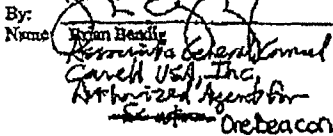 By:
Name: Brian Bendig
Associate General Counsel
USA, Inc,
Authorized Agent for
OneBeacon